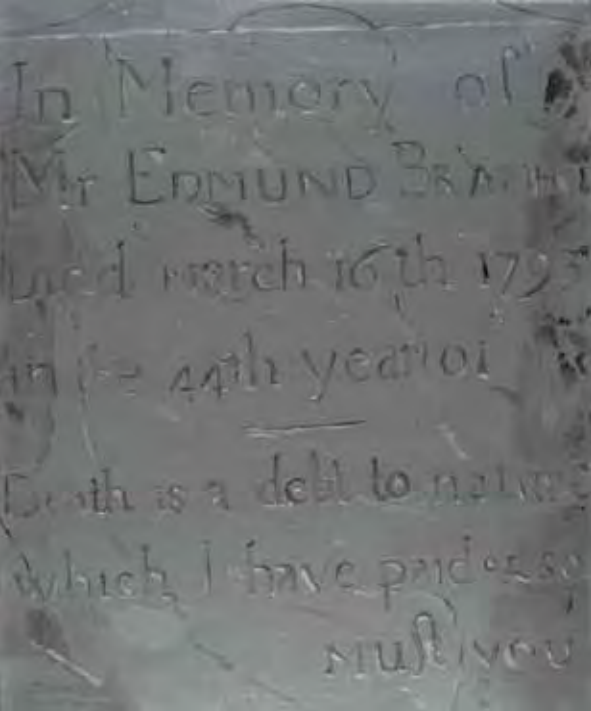 In Memory of
Mr EDMUND
Died March 16th 1793
in the 44th year of
Death is a debt to nature
which I have paid & so
Must you